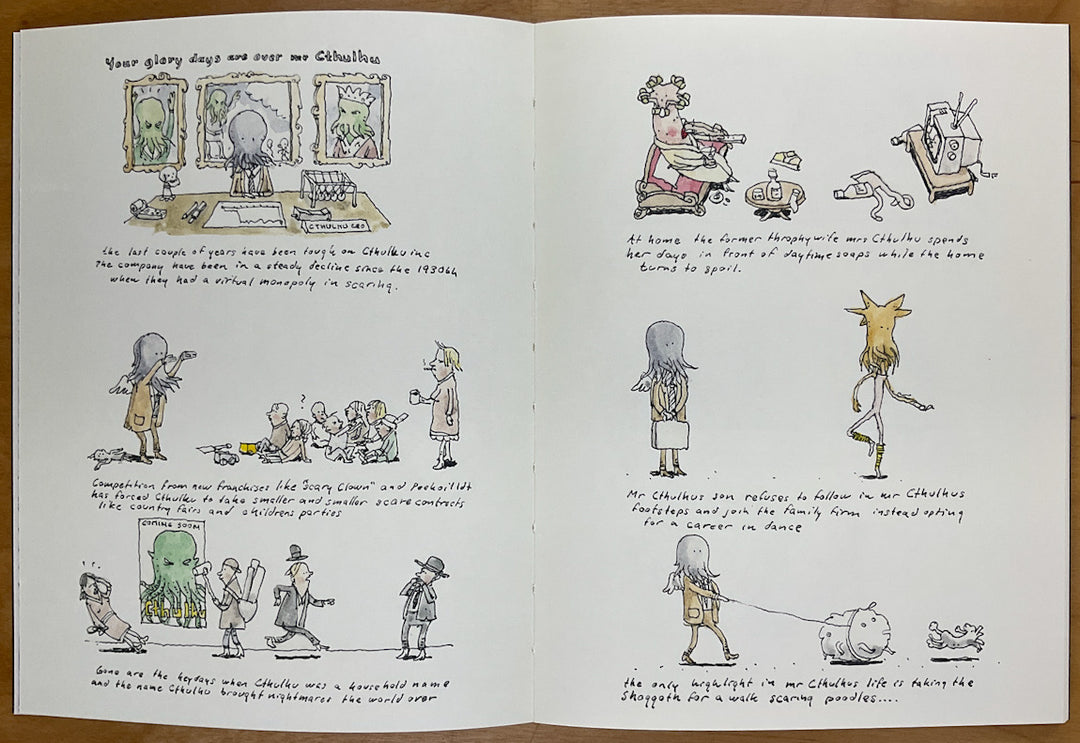 Your glory days are over mr Cthulhu
CTHULHU CEO
the last couple of years have been tough on Cthulhu inc
The company have been in a steady decline since the 1930th
when they had a virtual monopoly in scaring.
?
Competition from new franchises like "Scary Clown" and
has forced Cthulhu to take smaller and smaller scare contracts
like country fairs and childrens parties
COMING SOON
Cthulhu
! ! !
Gone are the heydays when Cthulhu was a household name
and the name Cthulhu brought nightmares the world over
At home the former throphywife mrs Cthulhu spends
her days in front of daytime soaps while the home
turns to spoil.
Mr Cthulhus son refuses to follow in mr Cthulhus
footsteps and join the family firm instead opting
for a career in dance
the only highlight in mr Cthulhus life is taking the
Shoggoth for a walk scaring poodles....